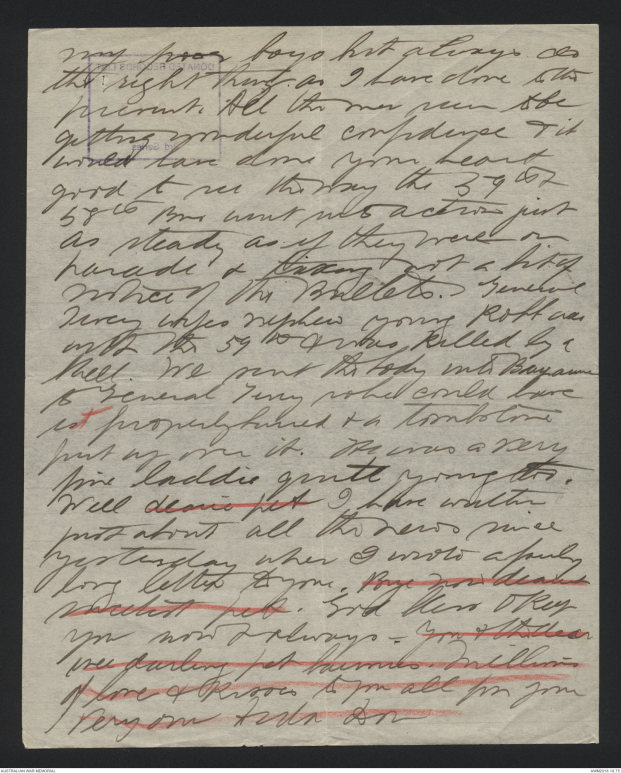 my poor boys but always do
the right thing as I have done to the
present. All the men seem to be
getting wonderful confidence & it
would have done your heart
good to see the way the 59th &
58th Bns went into action just
as steady as if they were on
parade & taking not a bit of
notice of the Bullets. General
wifes nephew young Roff was
with the 59th & was killed by a
shell. We sent the body into Bapaume
to General who could have
it properly buried & a tombstone
put up over it. He was a very
fine laddie quite young too.
Well dearie pet I have written
just about all the news since
yesterday when I wrote a fairly
long letter to you. Bye now dearest
sweetest pet. God bless & keep
you now & always – You & the dear
wee darling pet lammies. Millions
of love & kisses to you all from your
Very own
DONATED RECORDS LIST
AUSTRALIAN WAR MEMORIAL